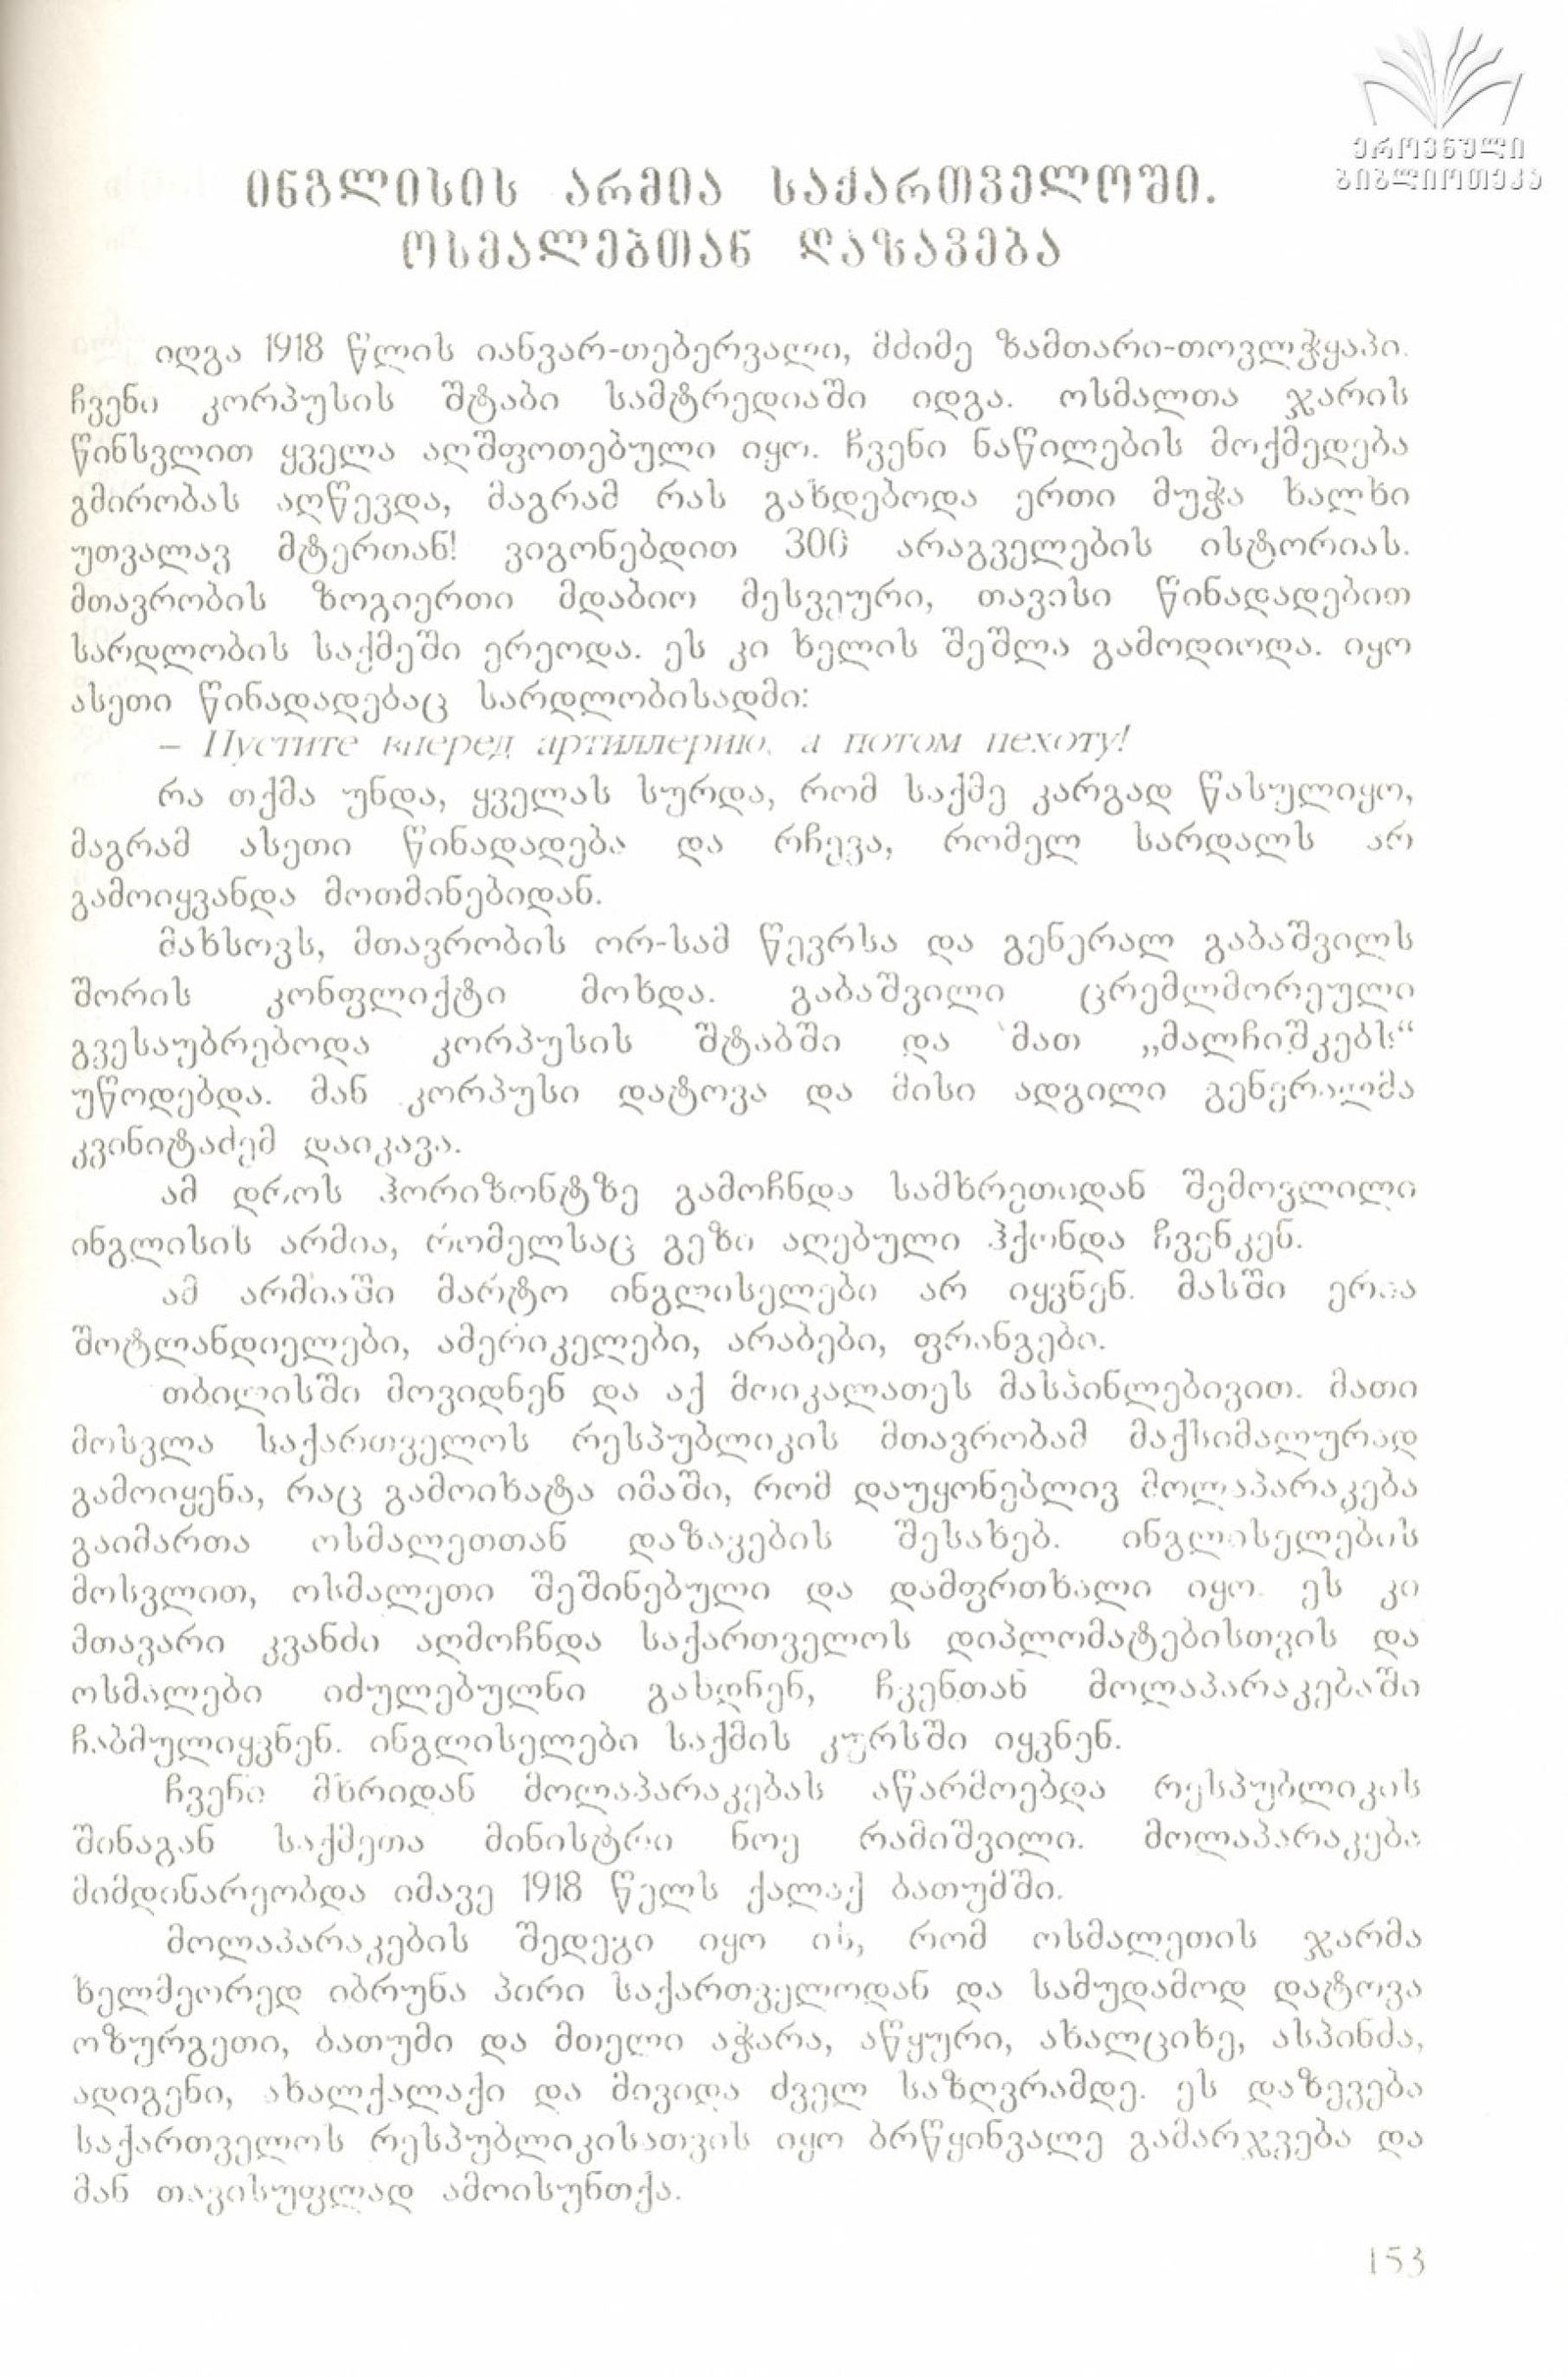 ეროვნული
ბიბლიოთეკა
ინგლისის არმია საქართველოში.
ოსმალებთან დაზავება
იდგა 1918 წლის იანვარ-თებერვალი, მძიმე ზამთარი-თოვლჭყაპი.
ჩვენი კორპუსის შტაბი სამტრედიაში იდგა. ოსმალთა ჯარის
წინსვლით ყველა აღშფოთებული იყო. ჩვენი ნაწილების მოქმედება
გმირობას აღწევდა, მაგრამ რას გახდებოდა ერთი მუჭა ხალხი
უთვალავ მტერთან! ვიგონებდით 300 არაგველების ისტორიას.
მთავრობის ზოგიერთი მდაბიო მესვეური, თავისი წინადადებით
სარდლობის საქმეში ერეოდა. ეს კი ხელის შეშლა გამოდიოდა. იყო
ასეთი წინადადებაც სარდლობისადმი:
– Пустите вперед артиллерию, а потом пехоту!
რა თქმა უნდა, ყველას სურდა, რომ საქმე კარგად წასულიყო,
მაგრამ ასეთი წინადადება და რჩევა, რომელ სარდალს არ
გამოიყვანდა მოთმინებიდან.
მახსოვს, მთავრობის ორ-სამ წევრსა და გენერალ გაბაშვილს
შორის კონფლიქტი მოხდა. გაბაშვილი ცრემლმორეული
გვესაუბრებოდა კორპუსის შტაბში და მათ „მალჩიშკებს“
უწოდებდა. მან კორპუსი დატოვა და მისი ადგილი გენერალმა
კვინიტაძემ დაიკავა.
ამ დროს ჰორიზონტზე გამოჩნდა სამხრეთიდან შემოვლილი
ინგლისის არმია, რომელსაც გეზი აღებული ჰქონდა ჩვენკენ.
ამ არმიაში მარტო ინგლისელები არ იყვნენ. მასში ერია
შოტლანდიელები, ამერიკელები, არაბები, ფრანგები.
თბილისში მოვიდნენ და აქ მოიკალათეს მასპინლებივით. მათი
მოსვლა საქართველოს რესპუბლიკის მთავრობამ მაქსიმალურად
გამოიყენა, რაც გამოიხატა იმაში, რომ დაუყონებლივ მოლაპარაკება
გაიმართა ოსმალეთთან დაზავების შესახებ. ინგლისელების
მოსვლით, ოსმალეთი შეშინებული და დამფრთხალი იყო. ეს კი
მთავარი კვანძი აღმოჩნდა საქართველოს დიპლომატებისთვის და
ოსმალები იძულებულნი გახდნენ, ჩვენთან მოლაპარაკებაში
ჩაბმულიყვნენ. ინგლისელები საქმის კურსში იყვნენ.
ჩვენი მხრიდან მოლაპარაკებას აწარმოებდა რესპუბლიკის
შინაგან საქმეთა მინისტრი ნოე რამიშვილი. მოლაპარაკება
მიმდინარეობდა იმავე 1918 წელს ქალაქ ბათუმში.
მოლაპარაკების შედეგი იყო ის, რომ ოსმალეთის ჯარმა
ხელმეორედ იბრუნა პირი საქართველოდან და სამუდამოდ დატოვა
ოზურგეთი, ბათუმი და მთელი აჭარა, აწყური, ახალციხე, ასპინძა,
ადიგენი, ახალქალაქი და მივიდა ძველ საზღვრამდე. ეს დაზევება
საქართველოს რესპუბლიკისათვის იყო ბრწყინვალე გამარჯვება და
მან თავისუფლად ამოისუნთქა.
153